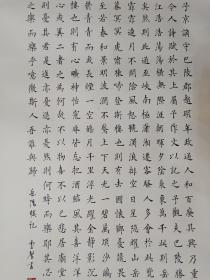 子京謫守巴陵郡越明年政通人和百廢具興乃重
今人詩賦於其上屬予作文以記之予觀夫巴陵勝
江浩浩湯湯橫無際涯朝暉夕陰氣象萬千此則岳
矣然則北通巫峽南極瀟湘遷客騷人多會於此覽
月不開陰風怒號濁浪排空日星隱耀山岳
暮冥冥虎嘯猿啼登斯樓也則有去國懷鄉憂讒畏
至若春和景明波瀾不驚上下天光一碧萬頃沙鷗
青青而或長煙一空皓月千里浮光耀金靜影沉
心曠神怡寵辱皆忘把酒臨風
二者之為何哉不以物喜不以己悲居廟堂
則憂其君是進亦憂退亦憂然則何時而樂耶其
之樂而樂乎噫微斯人吾誰與歸 岳陽樓記